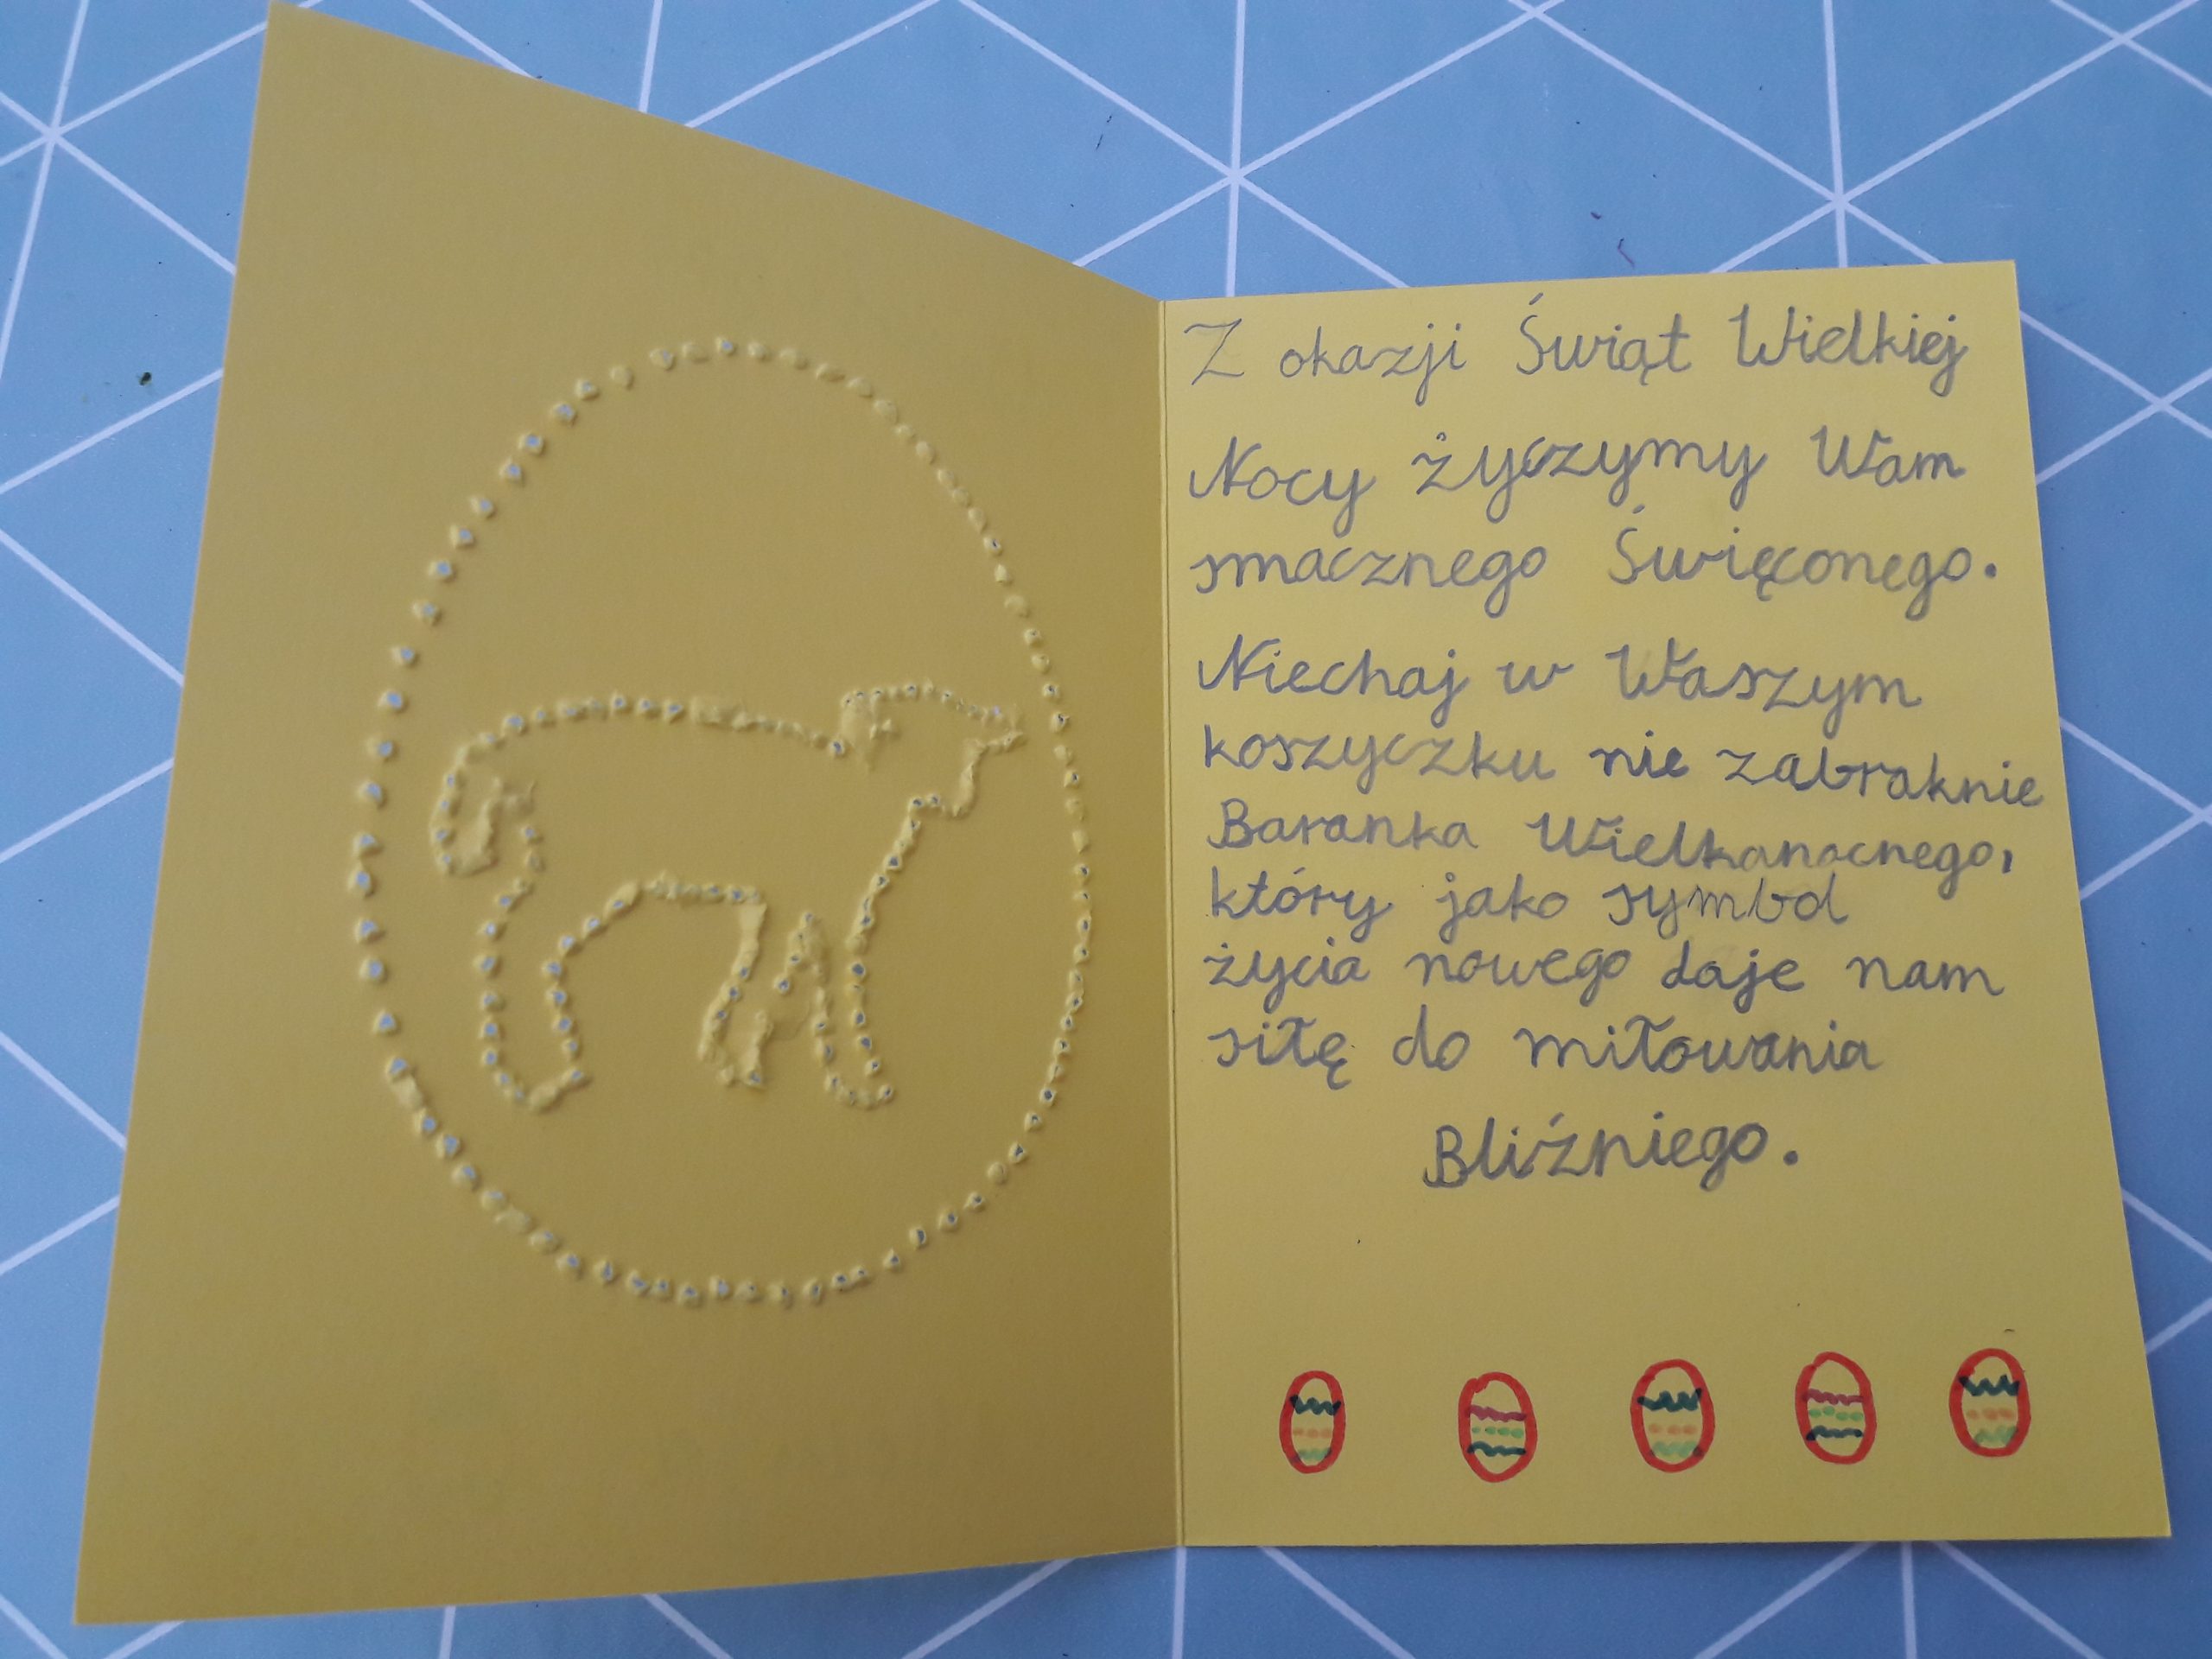 Z okazji Świąt Wielkiej
Nocy życzymy Wam
smacznego Święconego.
Niechaj w Waszym
koszyczku nie zabraknie
Baranka Wielkanocnego,
który jako symbol
życia nowego daje nam
siłę do miłowania
Bliźniego.